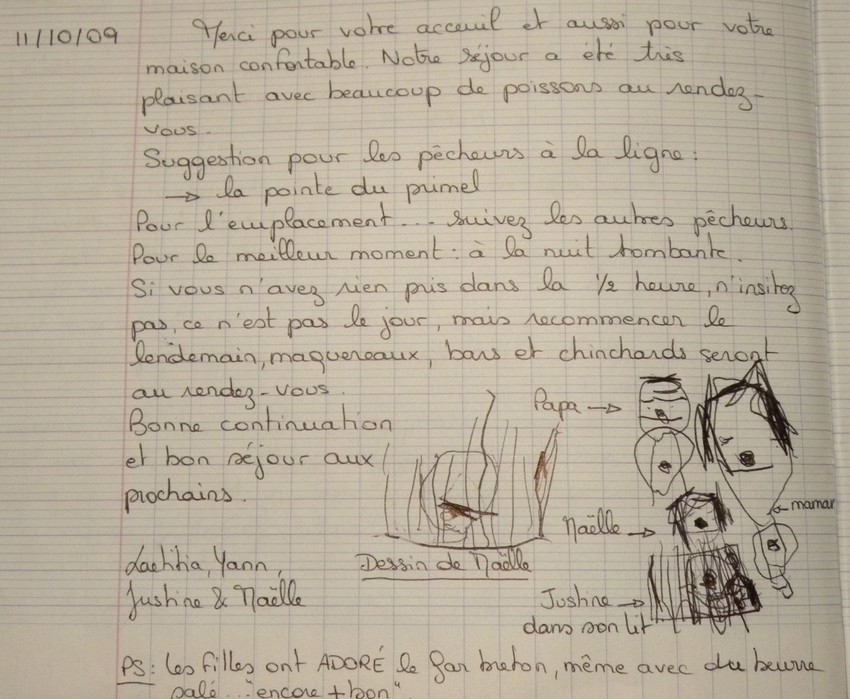 11/10/09 Merci pour votre acceuil et aussi pour votre
maison confortable. Notre séjour a été très
plaisant avec beaucoup de poissons au rendez-
vous.
Suggestion pour les pêcheurs à la ligne :
→ la pointe du primel
Pour l'emplacement... suivez les autres pêcheurs.
Pour le meilleur moment : à la nuit tombante.
Si vous n'avez rien pris dans la 1/2 heure, n'insitez
pas, ce n'est pas le jour, mais recommencer le
lendemain, maquereaux, bars et chinchards seront
au rendez-vous.
Bonne continuation
et bon séjour aux
prochains.
Laetitia, Yann,
Justine & Naëlle
Dessin de Naëlle
Papa →
maman
Naëlle →
Justine →
dans son lit
PS : Les filles ont ADORÉ le far breton, même avec du beurre
salé... "encore + bon"